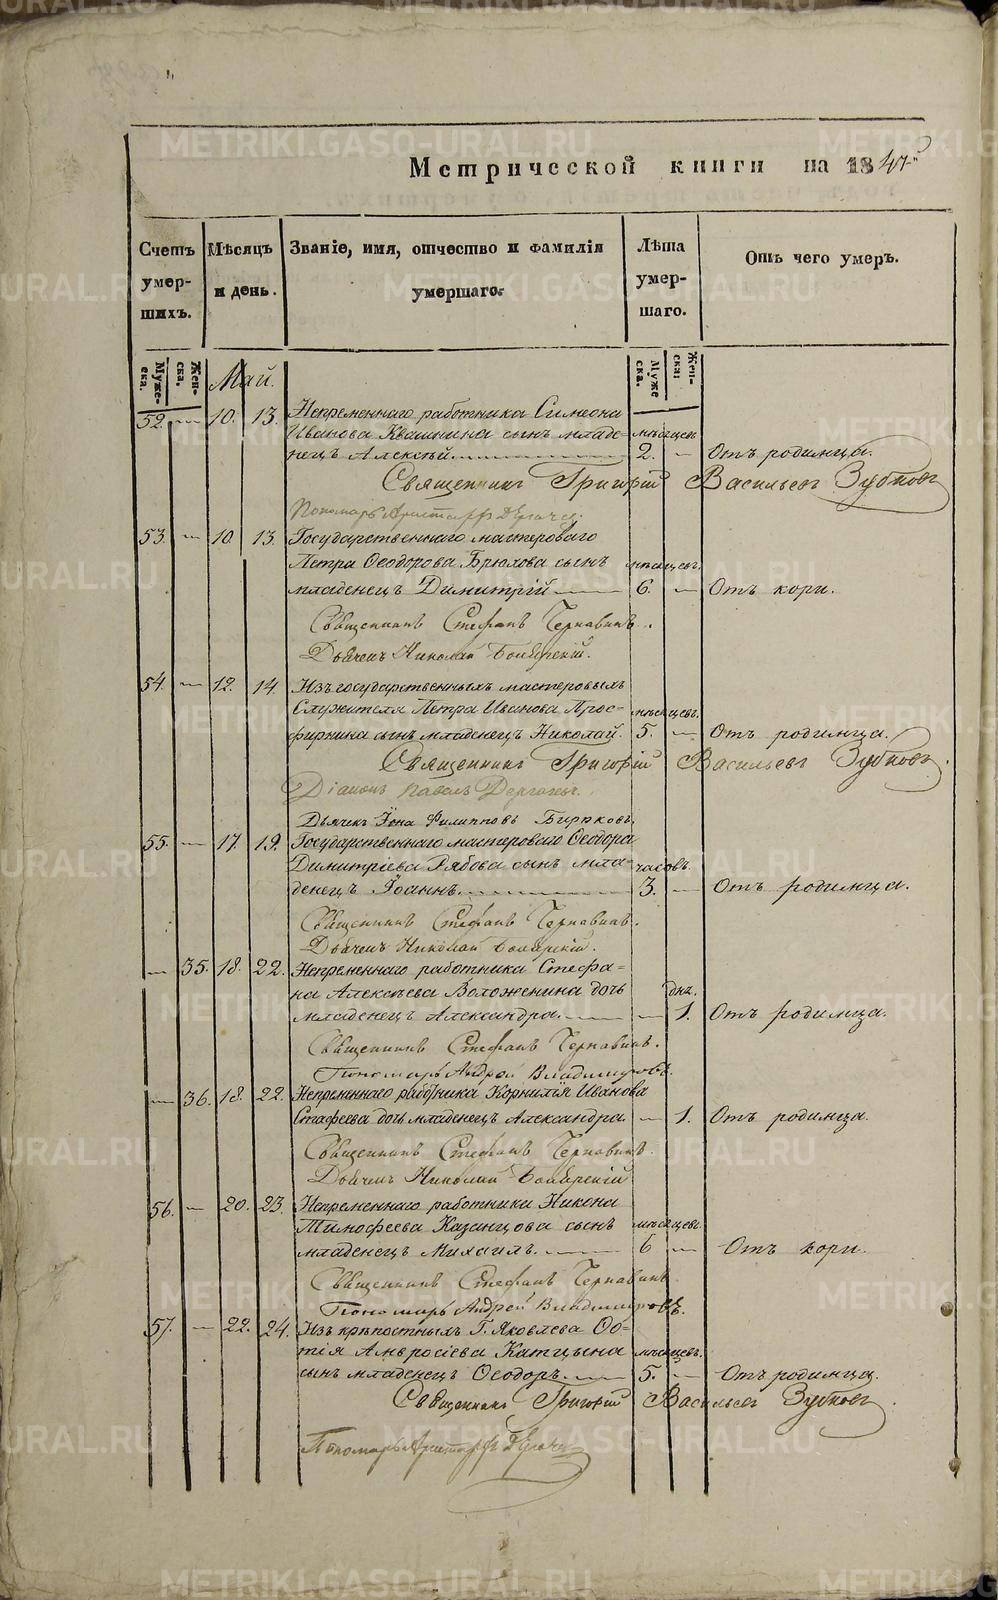 Метрической книги на 18
Счетъ умершихъ.
Мѣсяцъ и день.
Званіе, имя, отчество и фамилія умершаго.
Лѣта умершаго.
Отъ чего умеръ.
Мужеска. Женска. Май. Мужеска. Женска.
52. — 10. 13. Непременнаго работника Симеона
Иванова Квашнина сынъ младе- мѣсяцевъ
нецъ Алексѣй. 2. — Отъ родимца.
Священникъ Григорій Васильевъ Зубковъ
Пономарь Аристархъ
53. — 10. 13. Государственнаго мастероваго
Петра Ѳеодорова Брюхова сынъ мѣсяцевъ.
младенецъ Димитрій 6. — Отъ кори.
Священникъ Стефанъ Чернавинъ.
Дьячекъ Николай
54. — 12. 14. Изъ государственныхъ мастеровыхъ
Служителя Петра Иванова Прос- мѣсяцевъ.
фирника сынъ младенецъ Николай. 5. — Отъ родимца.
Священникъ Григорій Васильевъ Зубковъ.
Діаконъ Павелъ
Дьячекъ Іона Филипповъ Бирюковъ.
55. — 17. 19. Государственнаго мастероваго Ѳеодора
Димитріева Рябова сынъ мла- часовъ.
денецъ Іоаннъ. 3. — Отъ родимца.
Священникъ Стефанъ Чернавинъ.
Дьячекъ Николай
— 35. 18. 22. Непременнаго работника Стефа-
на Алексѣева Воложенина дочь дня.
младенецъ Александра. — 1. Отъ родимца.
Священникъ Стефанъ Чернавинъ.
Пономарь Андрей Владимировъ.
— 36. 18. 22. Непременнаго работника Корнилія Иванова
Стафеева дочь младенецъ Александра. — 1. Отъ родимца.
Священникъ Стефанъ Чернавинъ.
Дьячекъ Николай
56. — 20. 23. Непременнаго работника Никона
Тимофеева Казанцова сынъ мѣсяцевъ
младенецъ Михаилъ. 6 — Отъ кори.
Священникъ Стефанъ Чернавинъ
Пономарь Андрей Владимировъ.
57. — 22. 24. Изъ крѣпостныхъ Г. Яковлева Ѳо-
тія Амвросіева Катцына мѣсяцевъ.
сынъ младенецъ Ѳеодоръ. 5. — Отъ родимца.
Священникъ Григорій Васильевъ Зубковъ
Пономарь Аристархъ
METRIKI.GASO-URAL.RU